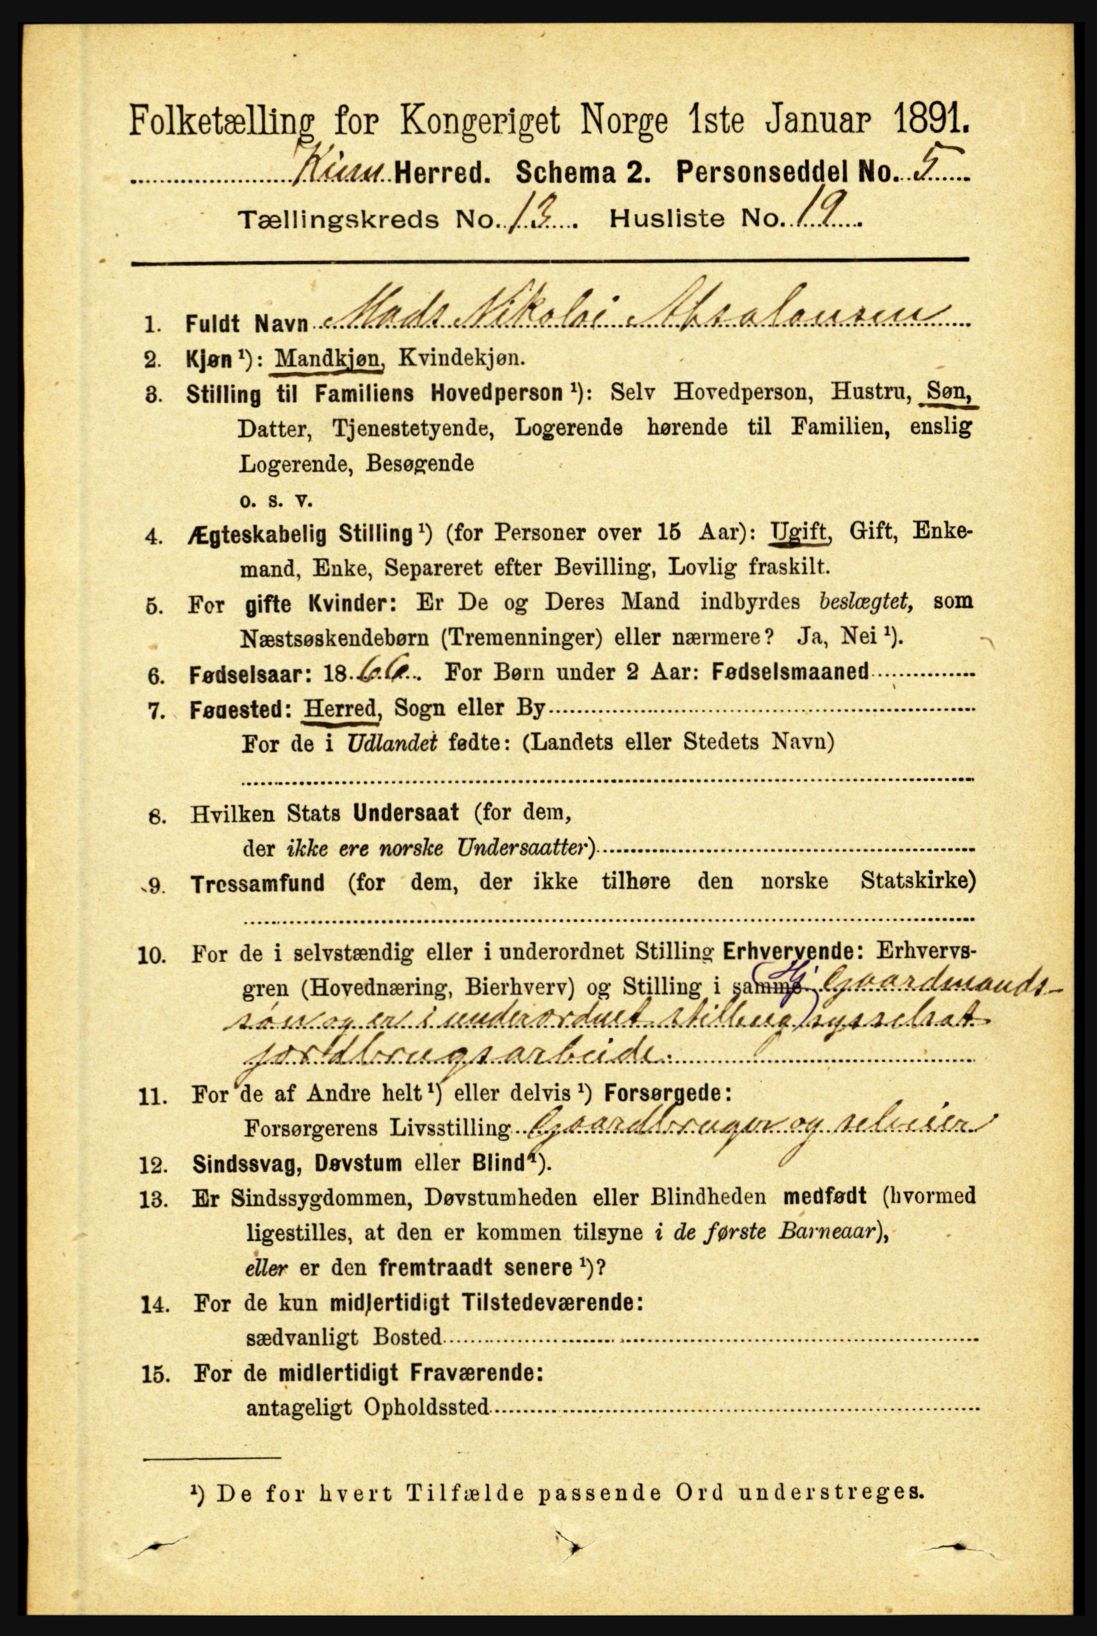 Folketælling for Kongeriget Norge 1ste Januar 1891.
Kinn Herred. Schema 2. Personseddel No. 5
Tællingskreds No. 13. Husliste No. 19.
1. Fuldt Navn Mads Nikolai Absalonsen
2. Kjøn ¹): Mandkjøn, Kvindekjøn.
3. Stilling til Familiens Hovedperson ¹): Selv Hovedperson, Hustru, Søn,
Datter, Tjenestetyende, Logerende hørende til Familien, enslig
Logerende, Besøgende
o. s. v.
4. Ægteskabelig Stilling ¹) (for Personer over 15 Aar): Ugift, Gift, Enke-
mand, Enke, Separeret efter Bevilling, Lovlig fraskilt.
5. For gifte Kvinder: Er De og Deres Mand indbyrdes beslægtet, som
Næstsøskendebørn (Tremenninger) eller nærmere? Ja, Nei ¹).
6. Fødselsaar: 1866. For Børn under 2 Aar: Fødselsmaaned
7. Fødested: Herred, Sogn eller By
For de i Udlandet fødte: (Landets eller Stedets Navn)
8. Hvilken Stats Undersaat (for dem,
der ikke ere norske Undersaatter)
9. Trossamfund (for dem, der ikke tilhøre den norske Statskirke)
10. For de i selvstændig eller i underordnet Stilling Erhvervende: Erhvervs-
gren (Hovednæring, Bierhverv) og Stilling i samme Gaardmands-
søn og er i underordnet stilling sysselsat
jordbrugsarbeide.
11. For de af Andre helt ¹) eller delvis ¹) Forsørgede:
Forsørgerens Livsstilling Gaardbruger og selveier
12. Sindssvag, Døvstum eller Blind ¹).
13. Er Sindssygdommen, Døvstumheden eller Blindheden medfødt (hvormed
ligestilles, at den er kommen tilsyne i de første Barneaar),
eller er den fremtraadt senere ¹)?
14. For de kun midlertidigt Tilstedeværende:
sædvanligt Bosted
15. For de midlertidigt Fraværende:
antageligt Opholdssted
¹) De for hvert Tilfælde passende Ord understreges.